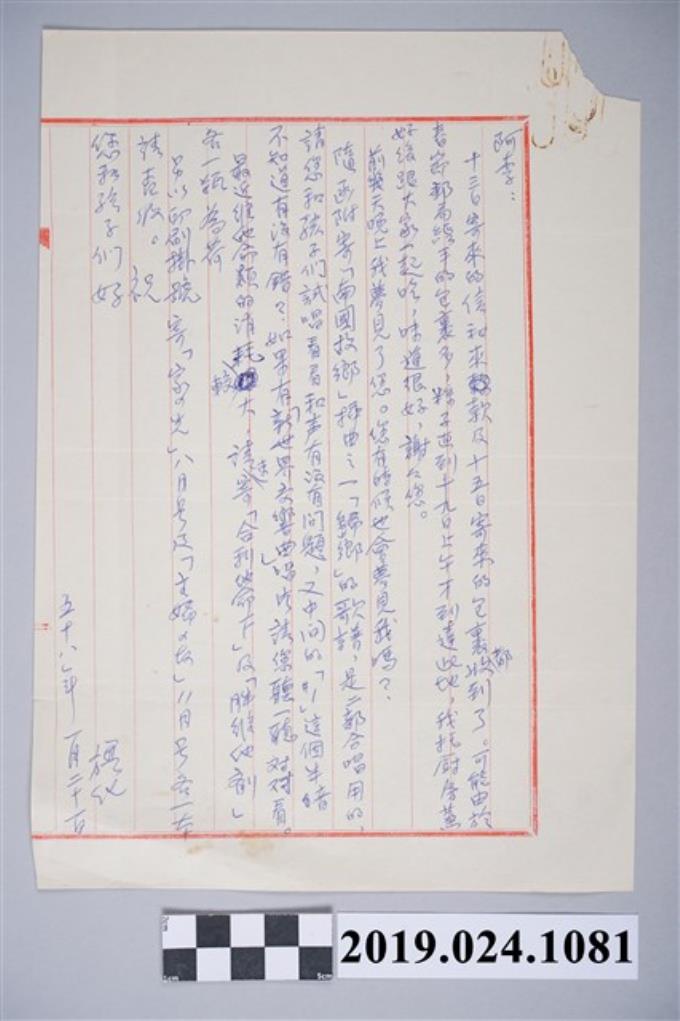 阿李：
十三日寄來的信和來款及十五日寄來的包裹都收到了。可能由於
春節郵局經手的包裹多，粽子遲到十九日上午才到達此地，我托厨房蒸
好後跟大家一起吃，味道很好，謝々您。
前幾天晚上我夢見了您。您有時候也會夢見我嗎？
隨函附寄「南國故鄉」揷曲之一「歸鄉」的歌譜，是二部合唱用的，
請您和孩子們試唱看看和声有沒有問題，又中间的「#」這個半音
不知道有沒有錯？如果有「新世界交響曲」唱片請您聽一聽対対看。
最近維他命類的消耗較大，請速寄「合利他命F」及「胖維他劑」
各一瓶為荷
另以印刷掛號寄「家の光」八月号及「主婦の友」11月号各一本
請查收。祝
您和孩子们好
楊化
五十八年 一月二十一日
2019.024.1081
5cm